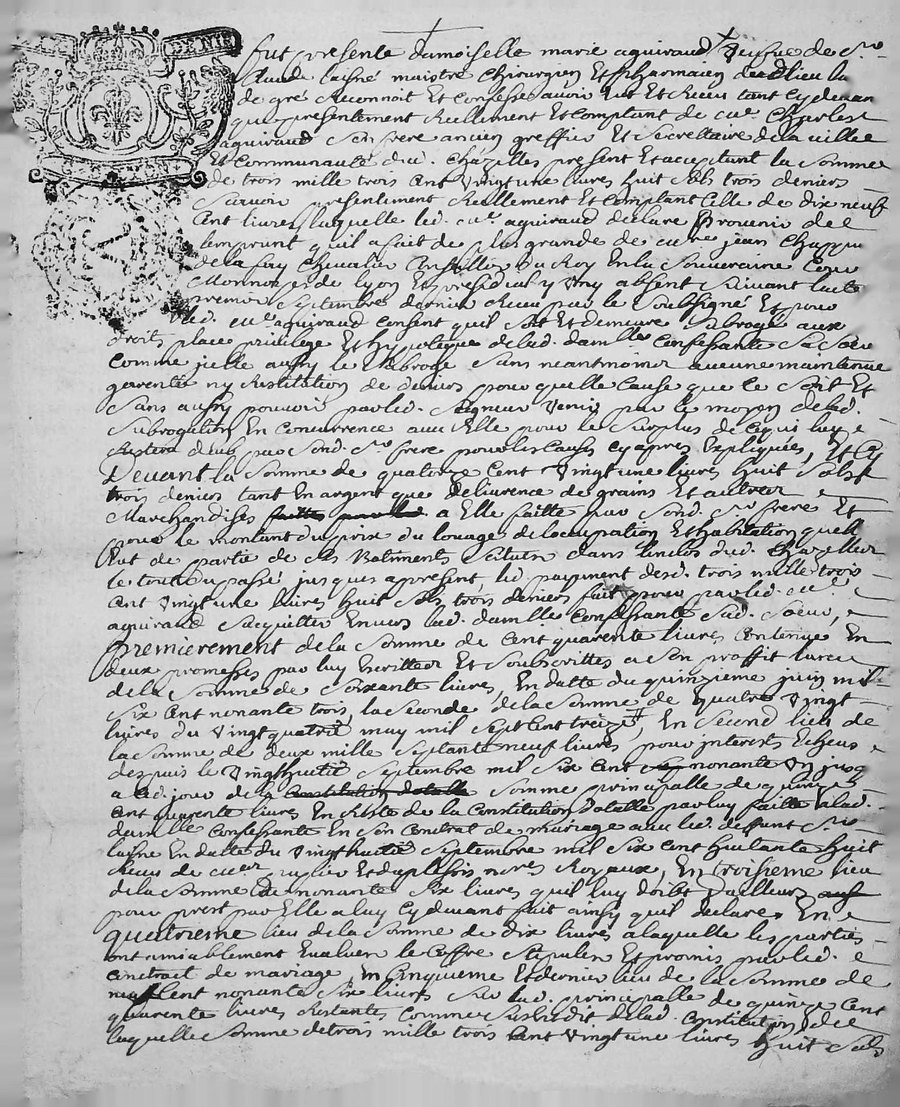 DENIE
fut presente damoiselle marie aguiraud Veufue de Sr
Claude laisné maistre Chirurgien Et pharmacien dud lieu la
de gré Reconnoit Et Confesse avoir Eut Et Receu tant Cy devan
que presentement Reellement Et Comptant de Me Charles
aguiraud Son frere ancien greffier Et Secretaire de la ville
Et Communauté dud. Chazelles present Et acceptant la Somme
de trois mille trois Cent Vingt une livres huit Sols trois deniers
Scavoir presentement Reellement Et Comptant Celle de dix neuf
Cent livres laquelle led. Me aguiraud declare Provenir de
lemprunt qu'il a fait de plus grande de jean Chappu
de la fay Chevalier Conseiller du Roy En la Souveraine Cour
Monnoyes de lyon Et presidial y Uny absent Suivant
premier Septembre dernier Receu par le Soubsigné Et pour
led. Me aguiraud Consent quil Soit Et demeure Subrogé aux
droits place privilege Et hypoteque de lad. damlle Confessante Sa Soeur
Comme jcelle aussy le Subroge Sans neantmoins aucune maintenue
garentie ny Restitution de deniers pour quelle Cause que Ce Soit Et
Sans aussy pouvoir par led. Seigneur Venir par le moyen de lad.
Subrogation En Concurrence avec Elle pour le Surplus de Ce qui luy
Restera deub par Sond. Sr frere pour les Causes Cy apres Expliquées, Et Cy
Devant la Somme de quatorze Cent Vingt une livres huit Sols
trois deniers tant En argent que delivrence de grains Et autres
Marchandises a Elle faitte par Sond. Sr frere Et
pour le montant du prix du louage de loccupation Et habitation quell
Eut de partie de Ses Batiments Situés dans lenclos dud. Chazelles
le tout du passé jusques a present, led. payment desd. trois mille trois
Cent Vingt une livres huit Sols trois deniers fait pour par led. Me
aguiraud Sacquitter Envers lad. damlle Confessante Sad. Soeur,
Premierement de la Somme de Cent quarente livres Contenue En
deux promesses par luy Escrittes Et Soubscrittes a Son proffit lune
de la Somme de Soixante livres, En datte du quinzieme juin mil
Six Cent nonante trois, la Seconde de la Somme de quatre Vingt
livres du Vingt quatre may mil Sept Cent treize, En Second lieu de
la Somme de deux mille Septante neuf livres pour interests Echeus
despuis le Vingthuit Septembre mil Six Cent nonante Un jusq
a led. jour de la Somme principalle de quinze
Cent quarente livres En Reste de la Constitution dotalle par luy faitte a lad.
damlle Confessante En Son Contrat de mariage avec led. deffunt Sr
laisné En datte du Vingthuit Septembre mil Six Cent huitante huit
Receu de Et duplessis nores Royaux, En troisieme lieu
de la Somme de nonante Six livres quil luy doibt dailleurs
pour prest par Elle a luy Cy devant fait ainsy quil declare, En
quatrieme lieu de la Somme de dix livres a laquelle les parties
ont amiablement Evaluer le Coffre Stipulen Et promis par led.
Contrait de mariage, En Cinquieme Et dernier lieu de la Somme de
neuf Cent nonante Six livres Sur lad. principalle de quinze Cent
quarente livres Restantes Comme Susdit de lad. Constitution de
laquelle Somme de trois mille trois Cent Vingt une livres
huit Sols